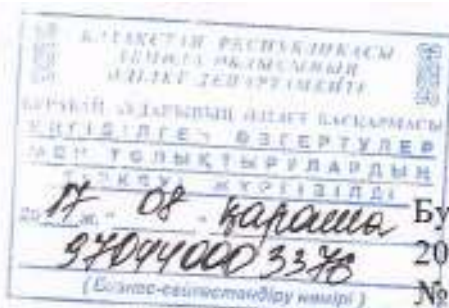 ҚАЗАҚСТАН РЕСПУБЛИКАСЫ
АҚМОЛА ОБЛЫСЫНЫҢ
ӘДІЛЕТ ДЕПАРТАМЕНТІ
БУРАБАЙ АУДАНЫНЫҢ ӘДІЛЕТ БАСҚАРМАСЫ
ЕНГІЗІЛГЕН ӨЗГЕРТУЛЕР
МЕН ТОЛЫҚТЫРУЛАРДЫҢ
ТІРКЕУІ ЖҮРГІЗІЛДІ
20 17 ж. " 08 " қараша
970440003376
(Бизнес-сәйкестандіру нөмірі)
Бу
20
№